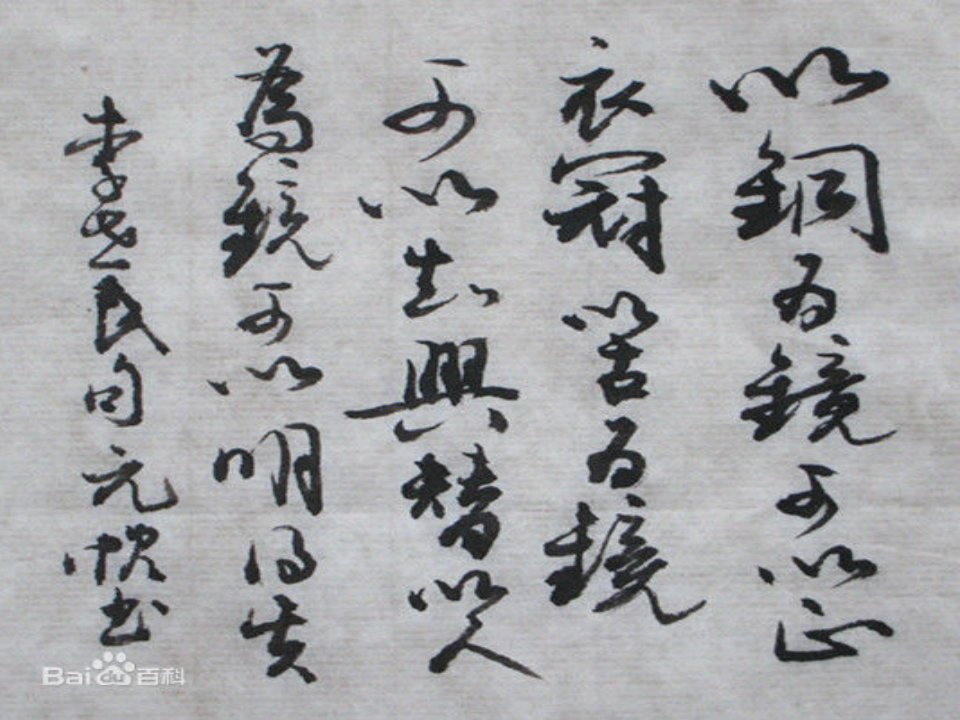 以銅为鏡可以正
衣冠以古为鏡
可以知興替以人
為鏡可以明得失
李世民句元忱书
Bai百科